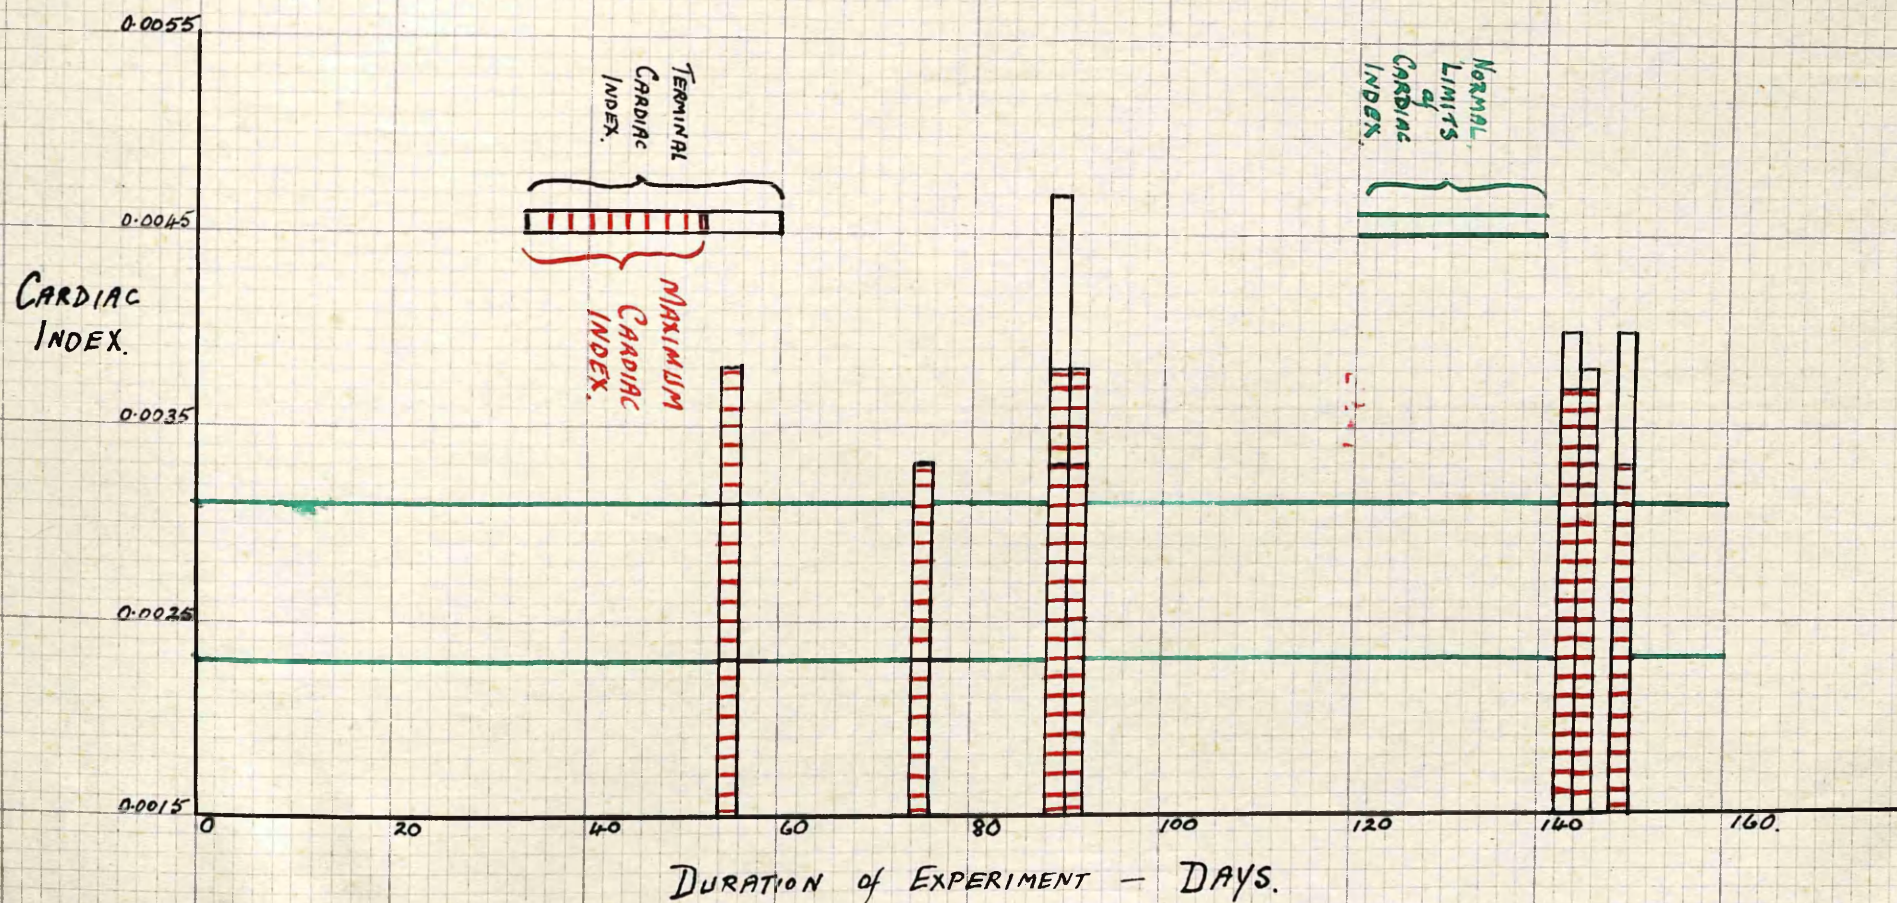 0.0055
0.0045
0.0035
0.0025
0.0015
CARDIAC
INDEX.
TERMINAL
CARDIAC
INDEX.
MAXIMUM
CARDIAC
INDEX.
NORMAL
LIMITS
of
CARDIAC
INDEX.
0 20 40 60 80 100 120 140 160.
DURATION of EXPERIMENT — DAYS.